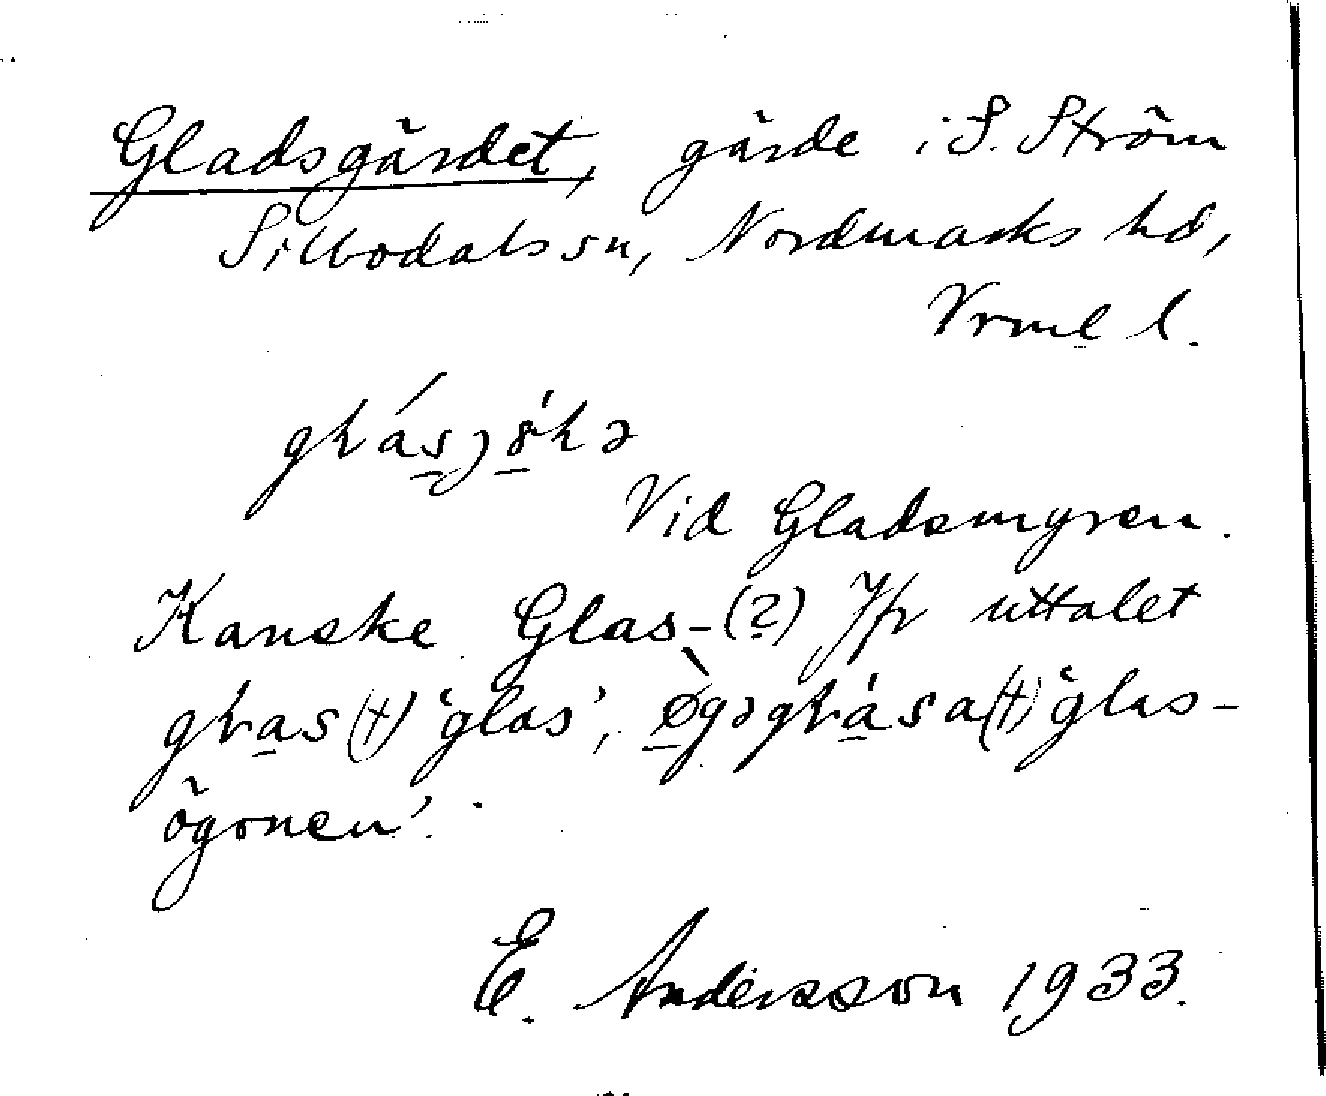 Gladsgärdet, gärde i S. Ström
Sillbodals sn, Nordmarks hd,
Vrml l.
Vid Gladsmyren.
Kanske Glas-(?) Jfr uttalet
"glas", "glas-
ögonen".
E. Andersson 1933.